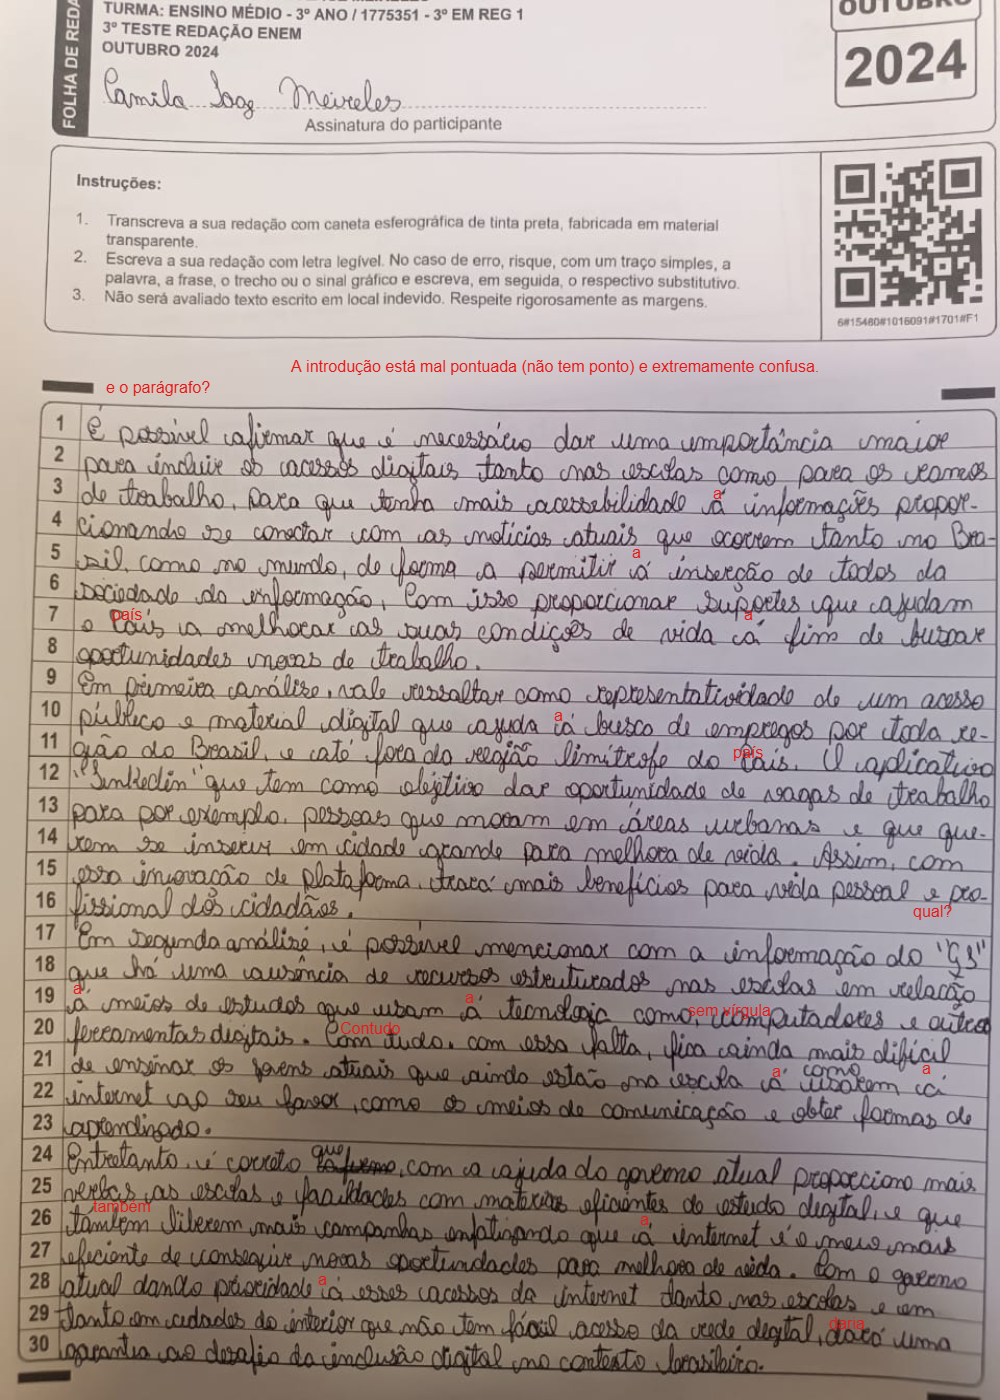 FOLHA DE REDA
TURMA: ENSINO MÉDIO - 3º ANO / 1775351 - 3º EM REG 1
3º TESTE REDAÇÃO ENEM
OUTUBRO 2024
OUTUBRO
2024
Camila Meireles
Assinatura do participante
Instruções:
1. Transcreva a sua redação com caneta esferográfica de tinta preta, fabricada em material
transparente.
2. Escreva a sua redação com letra legível. No caso de erro, risque, com um traço simples, a
palavra, a frase, o trecho ou o sinal gráfico e escreva, em seguida, o respectivo substitutivo.
3. Não será avaliado texto escrito em local indevido. Respeite rigorosamente as margens.
6#15480#1016091#1701#F1
A introdução está mal pontuada (não tem ponto) e extremamente confusa.
e o parágrafo?
1 É possível afirmar que é necessário dar uma importância maior
2 para incluir os acessos digitais tanto nas escolas como para os ramos
3 de trabalho, para que tenha mais acessebilidade á informações propor-
a
4 cionando se conectar com as notícias atuais que ocorrem tanto no Bra-
5 sil, como no mundo, de forma a permitir á inserção de todos da
a
6 sociedade da informação, Com isso proporcionar suportes que ajudam
7 o País a melhorar as suas condições de vida á fim de buscar
país
a
8 oportunidades novas de trabalho.
9 Em primeira análise, vale ressaltar como representatividade de um acesso
10 público e material digital que ajuda á busca de empregos por toda re-
a
11 gião do Brasil, e até fora da região limítrofe do País. O aplicativo
país
12 "Linkedin" que tem como objetivo dar oportunidade de vagas de trabalho
13 para por exemplo, pessoas que moram em áreas urbanas e que que-
14 rem se inserir em cidade grande para melhora de vida. Assim, com
15 essa inovação de plataforma, trará mais benefícios para vida pessoal e pro-
16 fissional dos cidadãos.
qual?
17 Em segunda análise, é possível mencionar com a informação do "G1"
18 que há uma ausência de recursos estruturados nas escolas em relação
19 á meios de estudos que usam á tecnologia como, computadores e outras
a
a
sem vírgula
20 ferramentas digitais. Com tudo, com essa falta, fica ainda mais difícil
Contudo
21 de ensinar os jovens atuais que ainda estão na escola á como usarem á
a
a
22 internet ao seu favor, como os meios de comunicação e obter formas de
23 aprendizado.
24 Entretanto, é correto que, com a ajuda do governo atual proporciona mais
25 verbas as escolas e faculdades com materias eficientes de estudo digital, e que
26 também liberem mais campanhas enfatizando que á internet é o meio mais
também
a
27 efeciente de conseguir novas oportundades para melhora de vida. Com o governo
28 atual dando prioridade á esses acessos da internet tanto nas escolas e em
a
29 tanto em cidades do interior que não tem fácil acesso da rede degital, dará uma
daria
30 garantia ao desafio da inclusão digital no contexto brasileiro.